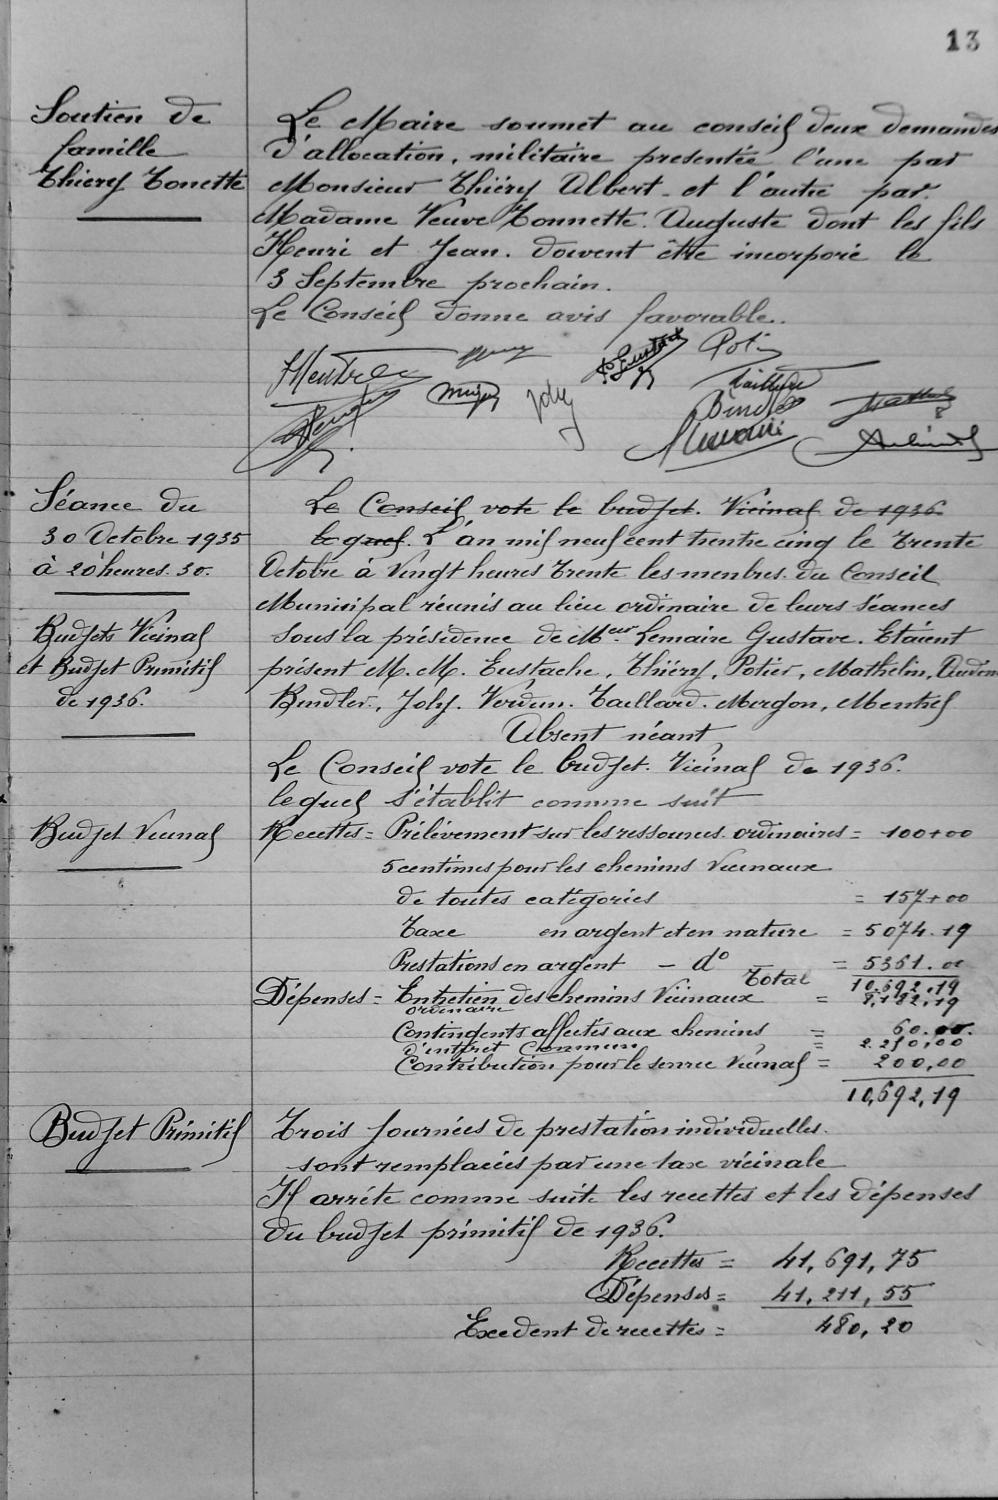 13
Soutien de
famille
Thiery Tonette
Le Maire soumet au conseil deux demandes
d'allocation, militaire presentée l'une par
Monsieur Thiéry Albert et l'autre par
Madame Veuve Tonnette Auguste dont les fils
Henri et Jean. doivent être incorporé le
3 Septembre prochain.
Le Conseil donne avis favorable.
Séance du
30 Octobre 1935
à 20 heures. 30.
Le Conseil vote le budjet. Vicinal de 1936
lequel. L'an mil neuf cent trente cinq le trente
Octobre à Vingt heures trente les menbres du Conseil
Municipal réunis au lieu ordinaire de leurs séances
sous la présidence de Meur Lemaire Gustave. Etaient
présent M.M. Eustache, Thiéry, Potier, Mathelin,
Bindler, Joly. Verdun. Taillard. Murgon, Mentrel
Absent néant,
Budjets Vicinal
et Budjet Primitif
de 1936.
Le Conseil vote le budjet. Vicinal de 1936.
lequel s'établit comme suit
Budjet Vicinal
Recettes = Prélèvement sur les ressources ordinaires = 100+00
5 centimes pour les chemins Vicinaux
de toutes catégories = 157+00
Taxe en argent et en nature = 5074.19
Prestations en argent - do = 5361.00
Total 10.692,19
Dépenses = Entretien des chemins Vicinaux = 8,182,19
ordinaire
Contingents affectés aux chemins = 60.00.
d'intéret Commun = 2.250,00
Contribution pour le service Vicinal = 200,00
10,692,19
Budjet Primitif
Trois journées de prestation individuelles.
sont remplacées par une taxe vicinale
Il arrête comme suit les recettes et les dépenses
du budjet primitif de 1936.
Recettes = 41,691,75
Dépenses = 41,211,55
Exedent de recettes = 480,20